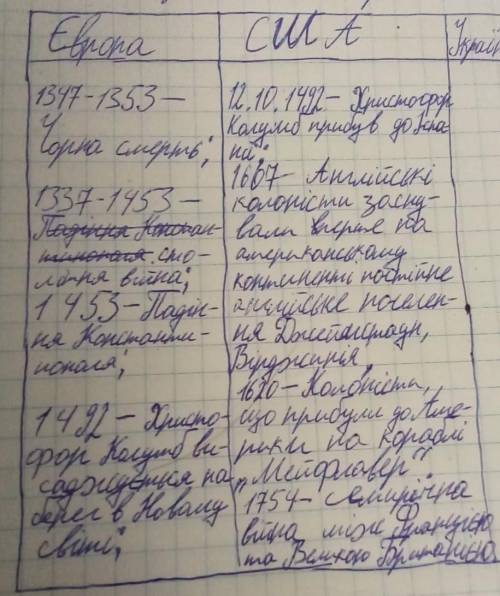 Європа
1347-1353 —
Чорна смерть;
1337-1453 —
Падіння Констан-
тинополя сто-
літня війна;
1453 - Падін-
ня Константи-
нополя;
1492 - Христо-
фор Колумб ви-
саджується на
берег в Новому
світі;
США
12.10.1492 - Христофор
Колумб прибув до
1607 - Англійські
колоністи засну-
вали вперше на
американському
континенті постійне
англійське поселен-
ня
Вірджинія,
1620 - Колоністи,
що прибули до Аме-
рики на кораблі
„Мейфлавер"
1754 - Семирічна
війна між Францією
та Великою Британією
Україн